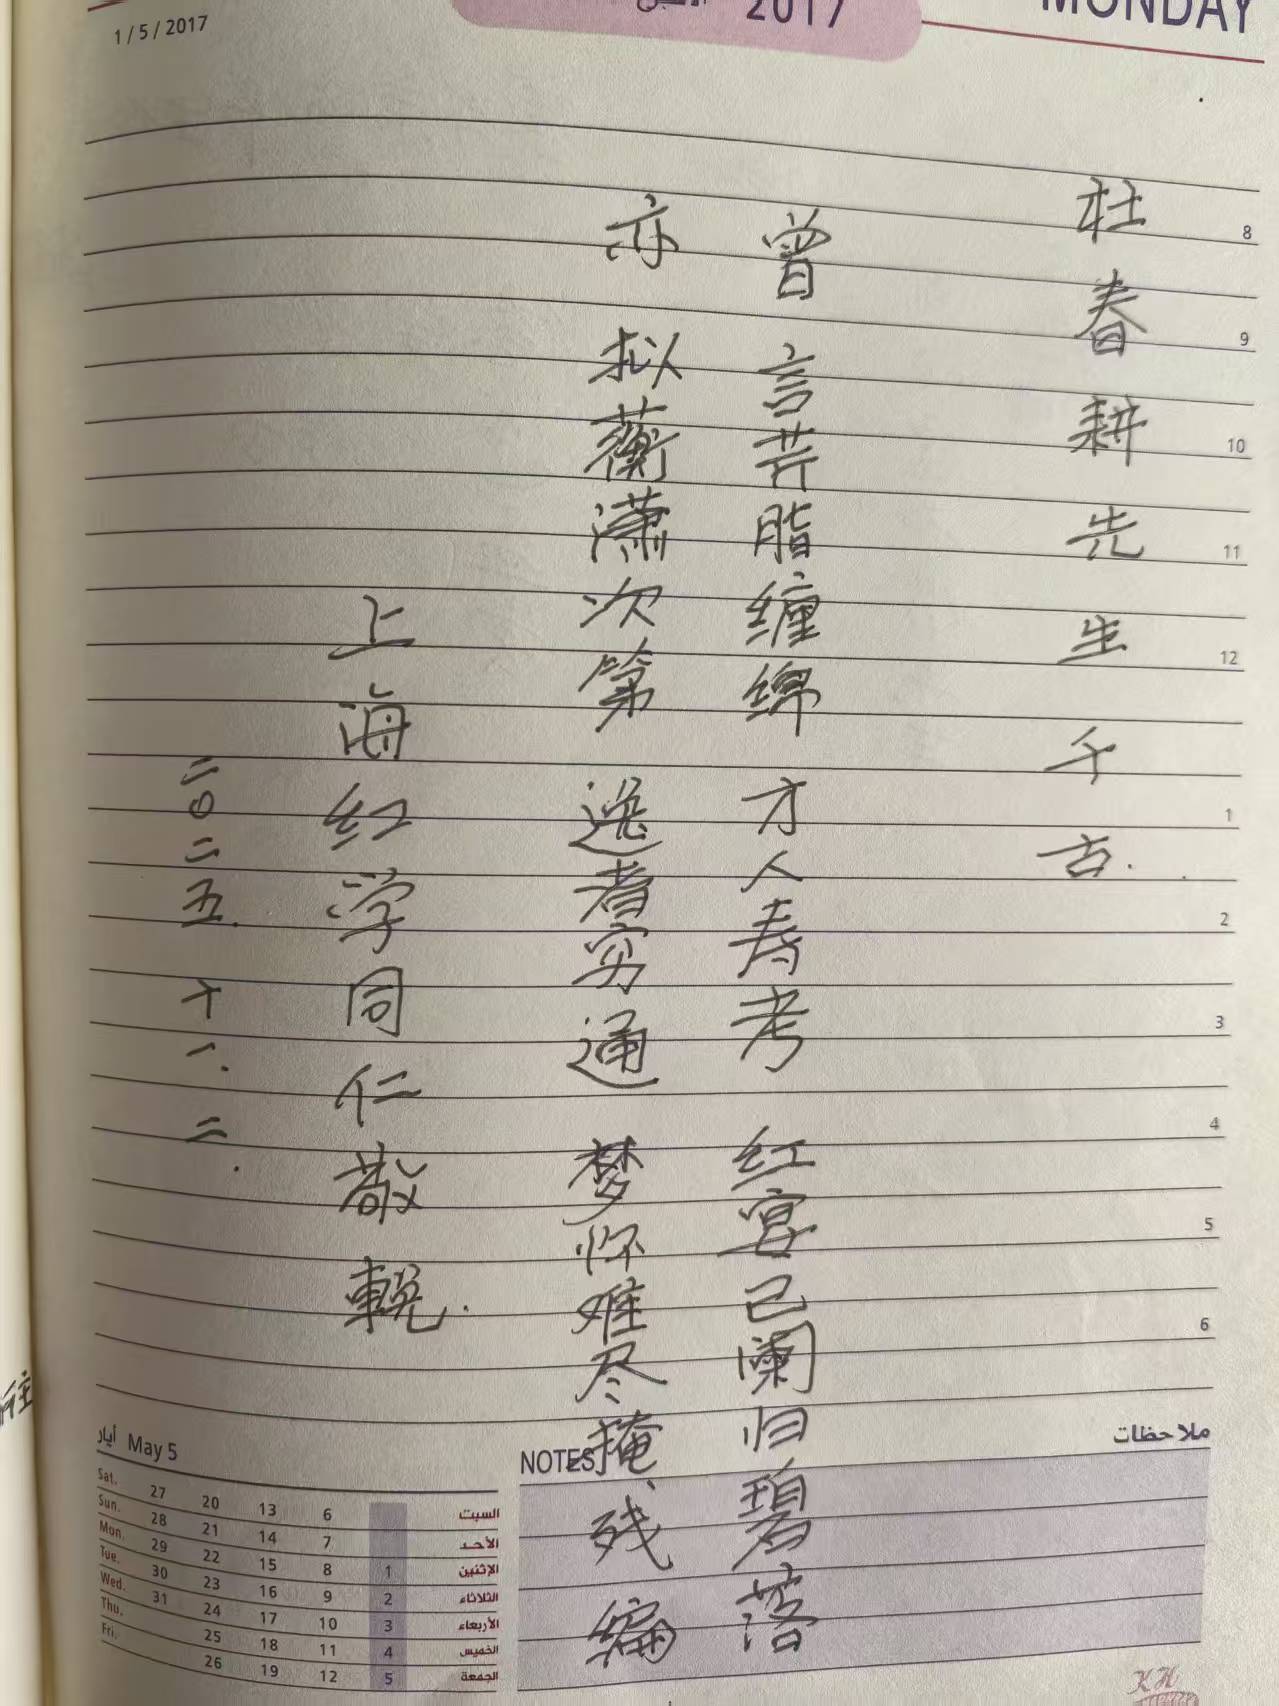 1 / 5 / 2017
2017
MONDAY
杜春耕先生千古.
曾言芹脂缠绵才人寿考红宴已阑归碧落
亦拟蘅潇次第逸者穷通梦怀难尽掩残编
上海红学同仁敬輓.
二〇二五.十一.二.
8
9
10
11
12
1
2
3
4
5
6
أيار May 5
Sat. 27 20 13 6 السبت
Sun. 28 21 14 7 الأحد
Mon. 29 22 15 8 1 الإثنين
Tue. 30 23 16 9 2 الثلاثاء
Wed. 31 24 17 10 3 الأربعاء
Thu. 25 18 11 4 الخميس
Fri. 26 19 12 5 الجمعة
NOTES ملاحظات
KH